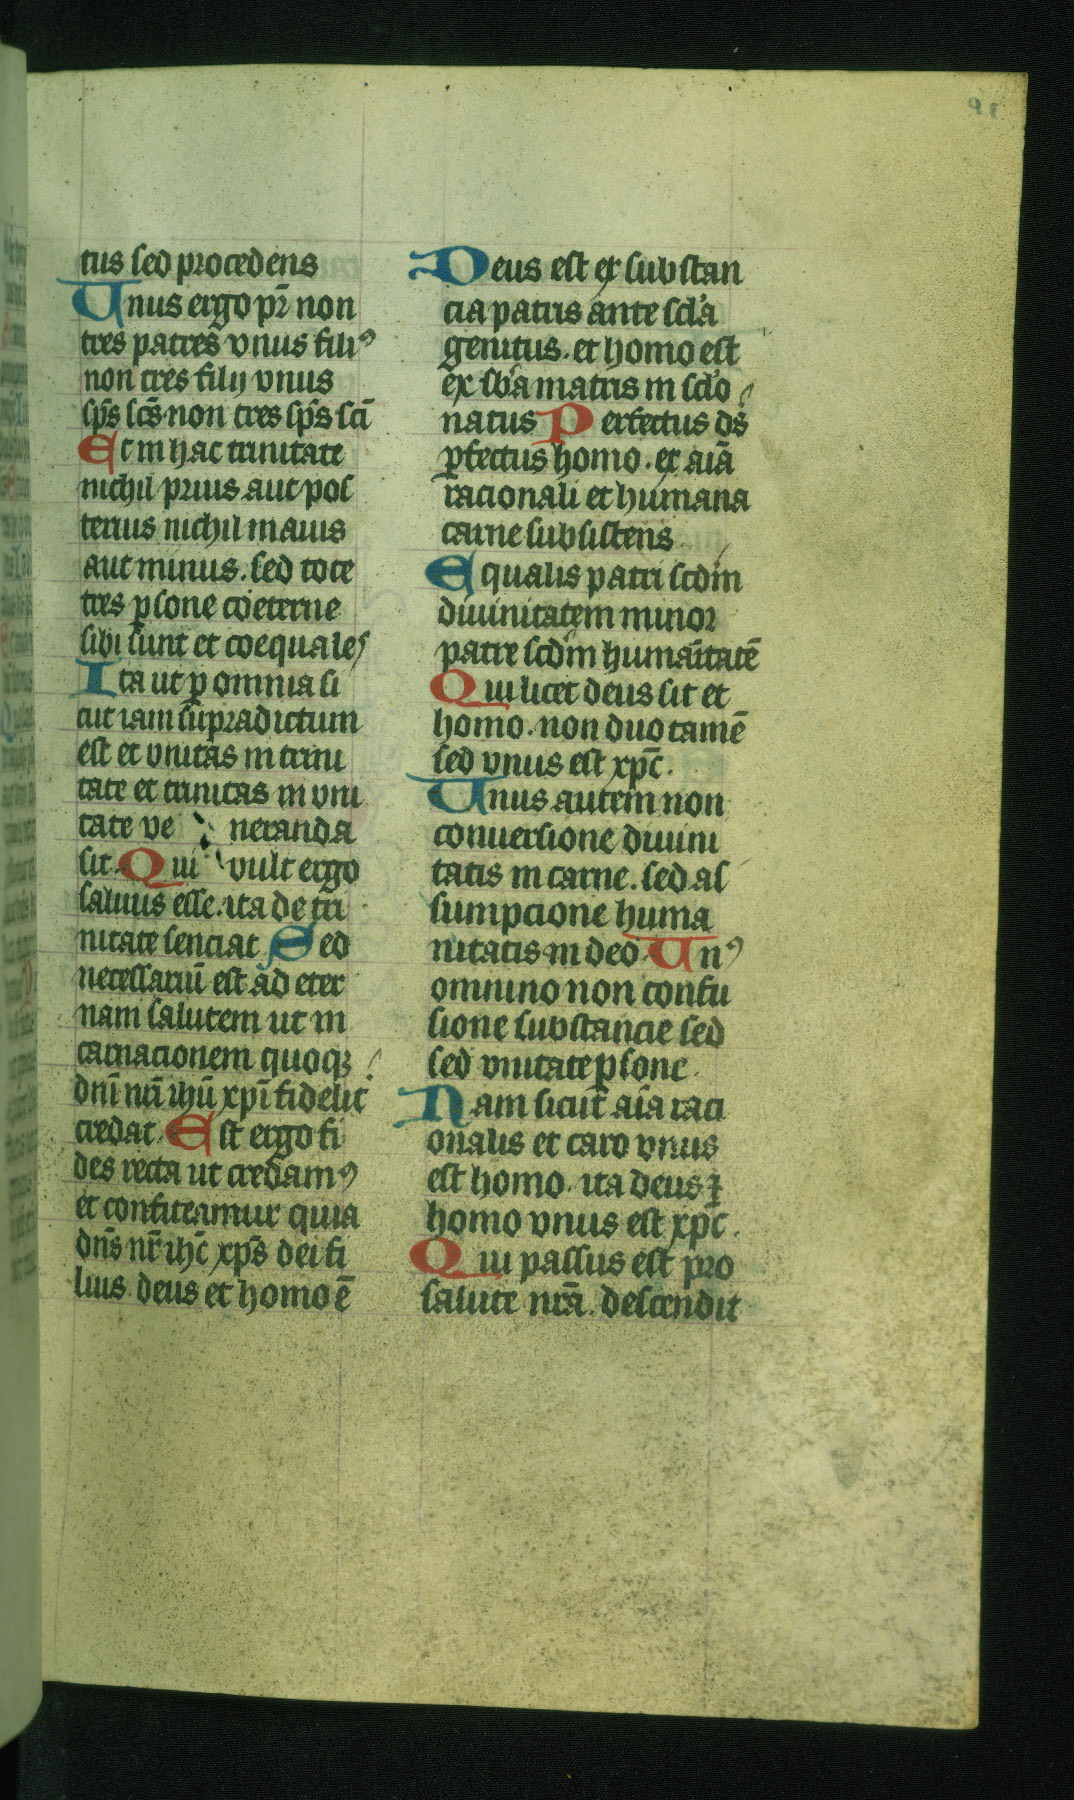 91
tus sed procedens
Unus ergo pr̄ non
tres patres vnus filiꝰ
non tres filij vnus
sp̄s sc̄s non tres sp̄s sc̄i
Et in hac trinitate
nichil prius aut pos
terius nichil maius
aut minus. sed tote
tres ꝑsone coeterne
sibi sunt et coequales
Ita ut ꝑ omnia si
cut iam supradictum
est et vnitas in trini
tate et trinitas in vni
tate ve neranda
sit. Qui vult ergo
saluus esse. ita de tri
nitate senciat Sed
necessariū est ad eter
nam salutem ut in
carnacionem quoqꝫ
dn̄i nr̄i ihū xp̄i fidelit̾
credat. Est ergo fi
des recta ut credamꝰ
et confiteamur quia
dn̄s nr̄ ihc̄ xp̄s dei fi
lius. deus et homo ē
Deus est ex substan
cia patris ante sc̄la
genitus. et homo est
ex sb̄a matris in sc̄lo
natus Perfectus ds̄
ꝑfectus homo. ex aīa
racionali et humana
carne subsistens.
Equalis patri scd̄m
diuinitatem minor
patre scd̄m humāitatē
Qui licet deus sit et
homo. non duo tamē
sed vnus est xpc̄.
Unus autem non
conuersione diuini
tatis in carne. sed as
sumpcione huma
nitatis in deo. Unꝰ
omnino non confu
sione substancie sed
sed vnitate ꝑsone.
Nam sicut aīa raci
onalis et caro vnus
est homo. ita deus ⁊
homo vnus est xpc̄.
Qui passus est pro
salute nr̄a. descendit